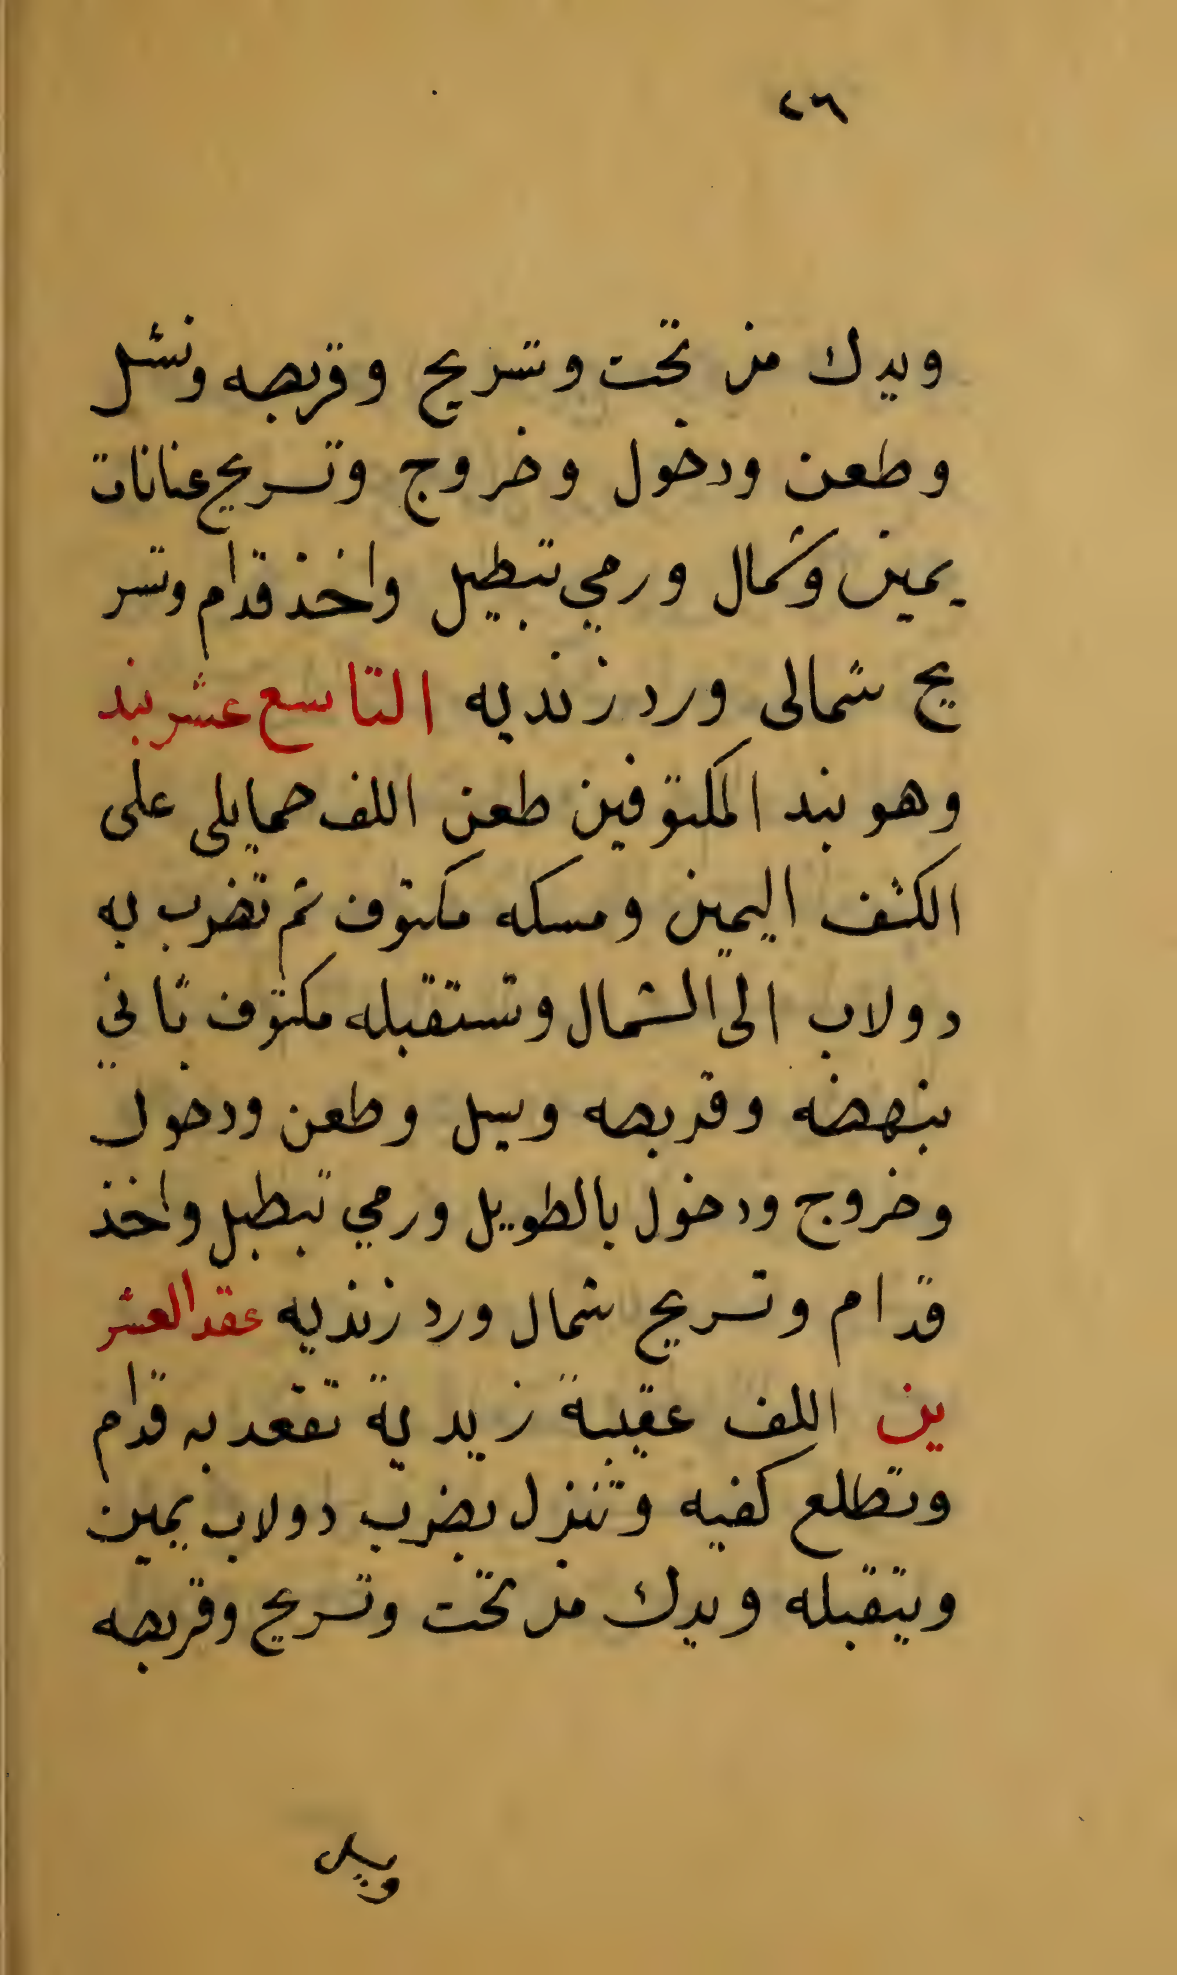 ٤٦
ويدك من تحت وتسريح وقربصه ونشل
وطعن ودخول وخروج وتسريح عنانات
يمين وشمال ورمي تبطيل واخذ قدام وتسر
يح شمالى ورد زنديه التاسع عشر بند
وهو بند المكتوفين طعن اللف حمايلى على
الكتف اليمين ومسكه مكتوف ثم تضرب به
دولاب الى الشمال وتستقبله مكتوف ثاني
بنهضه وقربصه وبيل وطعن ودخول
وخروج ودخول بالطويل ورمي تبطيل واخذ
قدام وتسريح شمال ورد زنديه عقد العشر
ين اللف عقبية زيدية تقعد به قدام
وتطلع كفيه وتنزل بضرب دولاب يمين
وبتقبله ويدك من تحت وتسريح وقربصه
وبيل